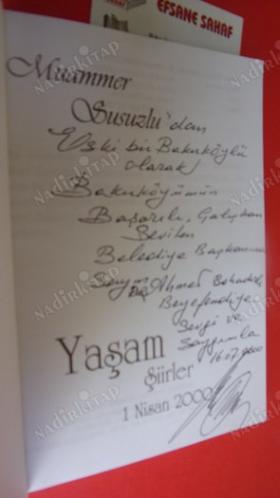 EFSANE SAHAF
Muammer
Susuzlu'dan
Eski bir Bakırköylü
olarak
Bakırköyümün
Başarılı, Çalışkan
Sevilen
Belediye Başkanımız
Sayın Ahmet
Beyefendiye
Sevgi ve
Saygımla
Yaşam
Şiirler
1 Nisan 2000
NadirKitap